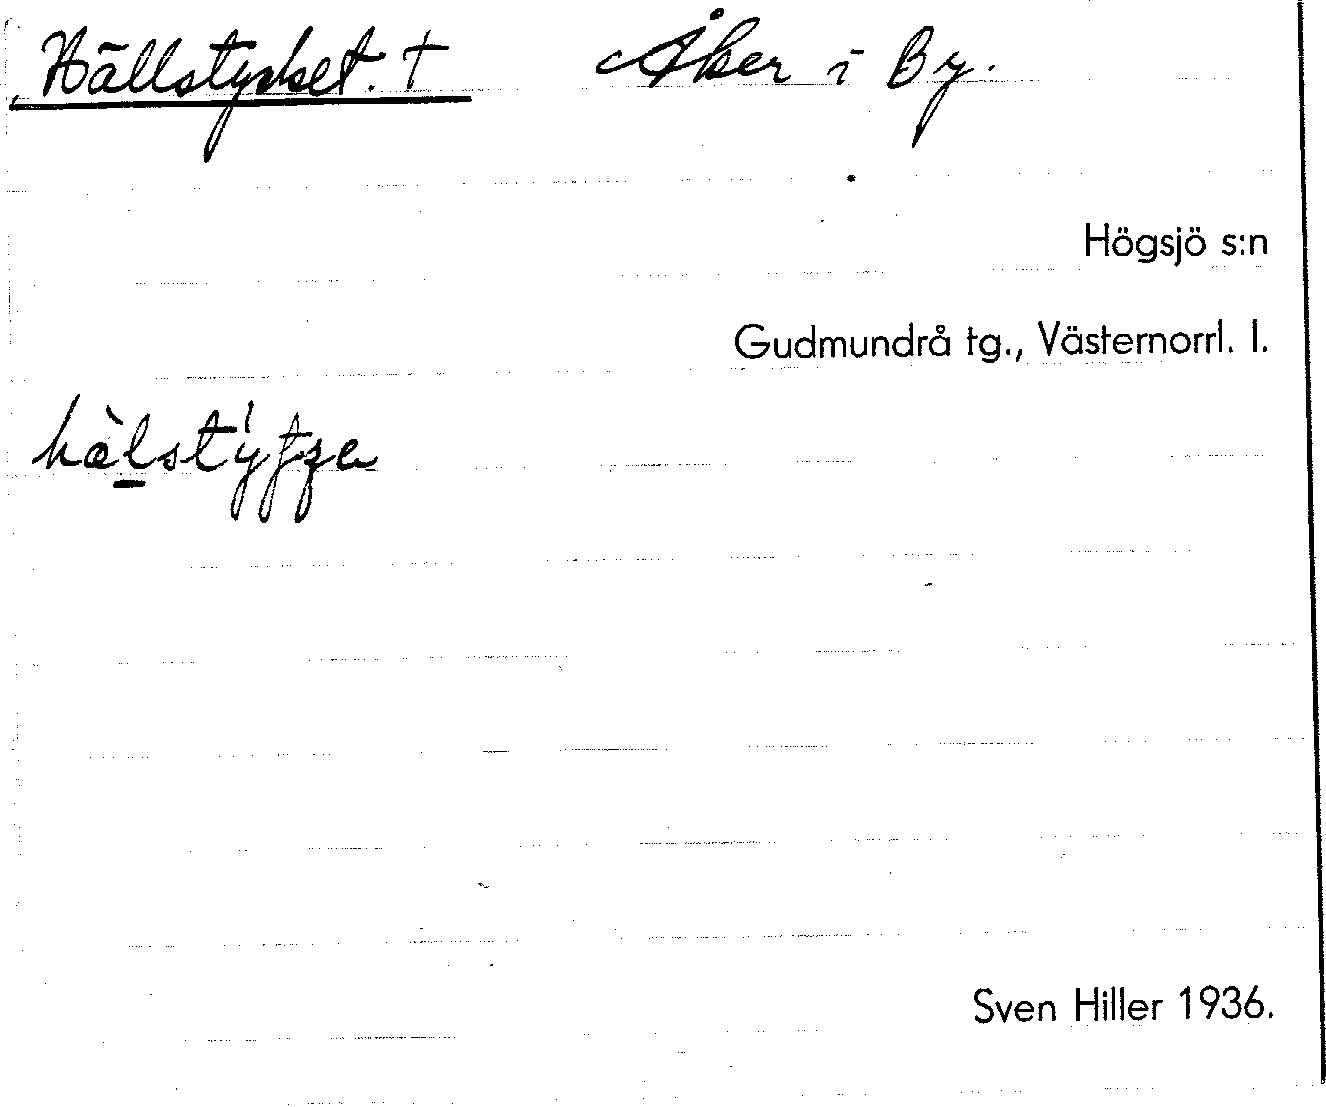 Hällstycket. † Åker i By.
Högsjö s:n
Gudmundrå tg., Västernorrl. l.
Sven Hiller 1936.